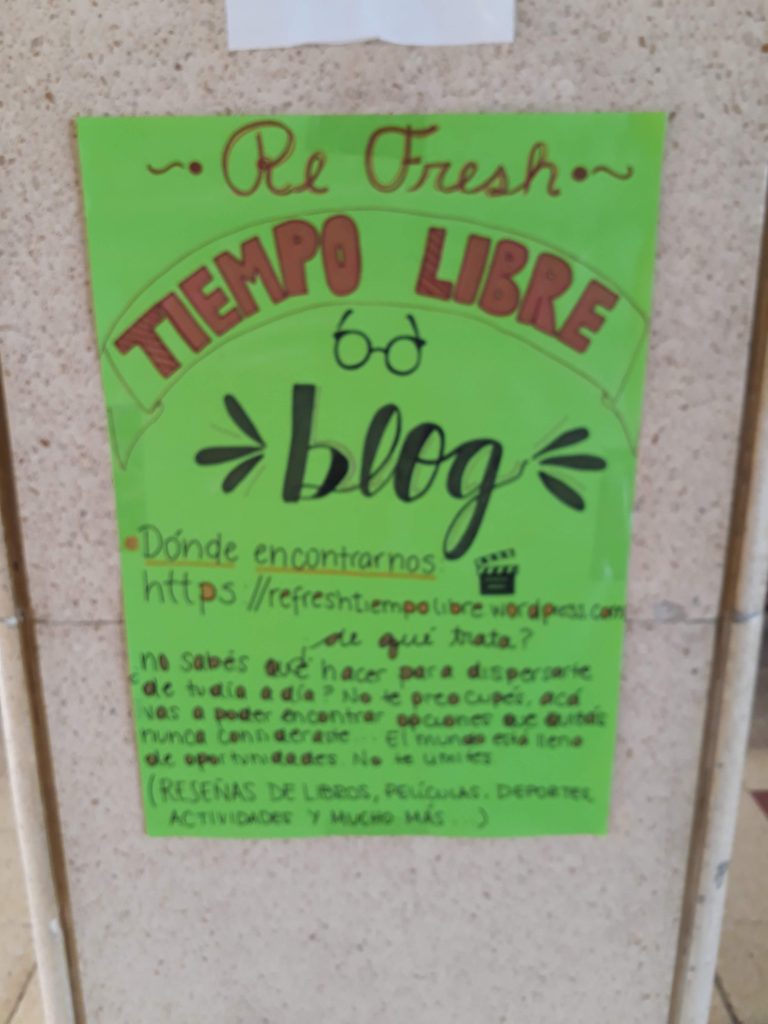 Re Fresh
TIEMPO LIBRE
blog
Dónde encontrarnos
https://refreshtiempolibre.wordpress.com
¿de qué trata?
¿no sabés qué hacer para dispersarte
de tu día a día? No te preocupés, acá
vas a poder encontrar opciones que quizás
nunca consideraste... El mundo está lleno
de oportunidades. No te limites
(RESEÑAS DE LIBROS, PELÍCULAS, DEPORTES,
ACTIVIDADES Y MUCHO MÁS...)